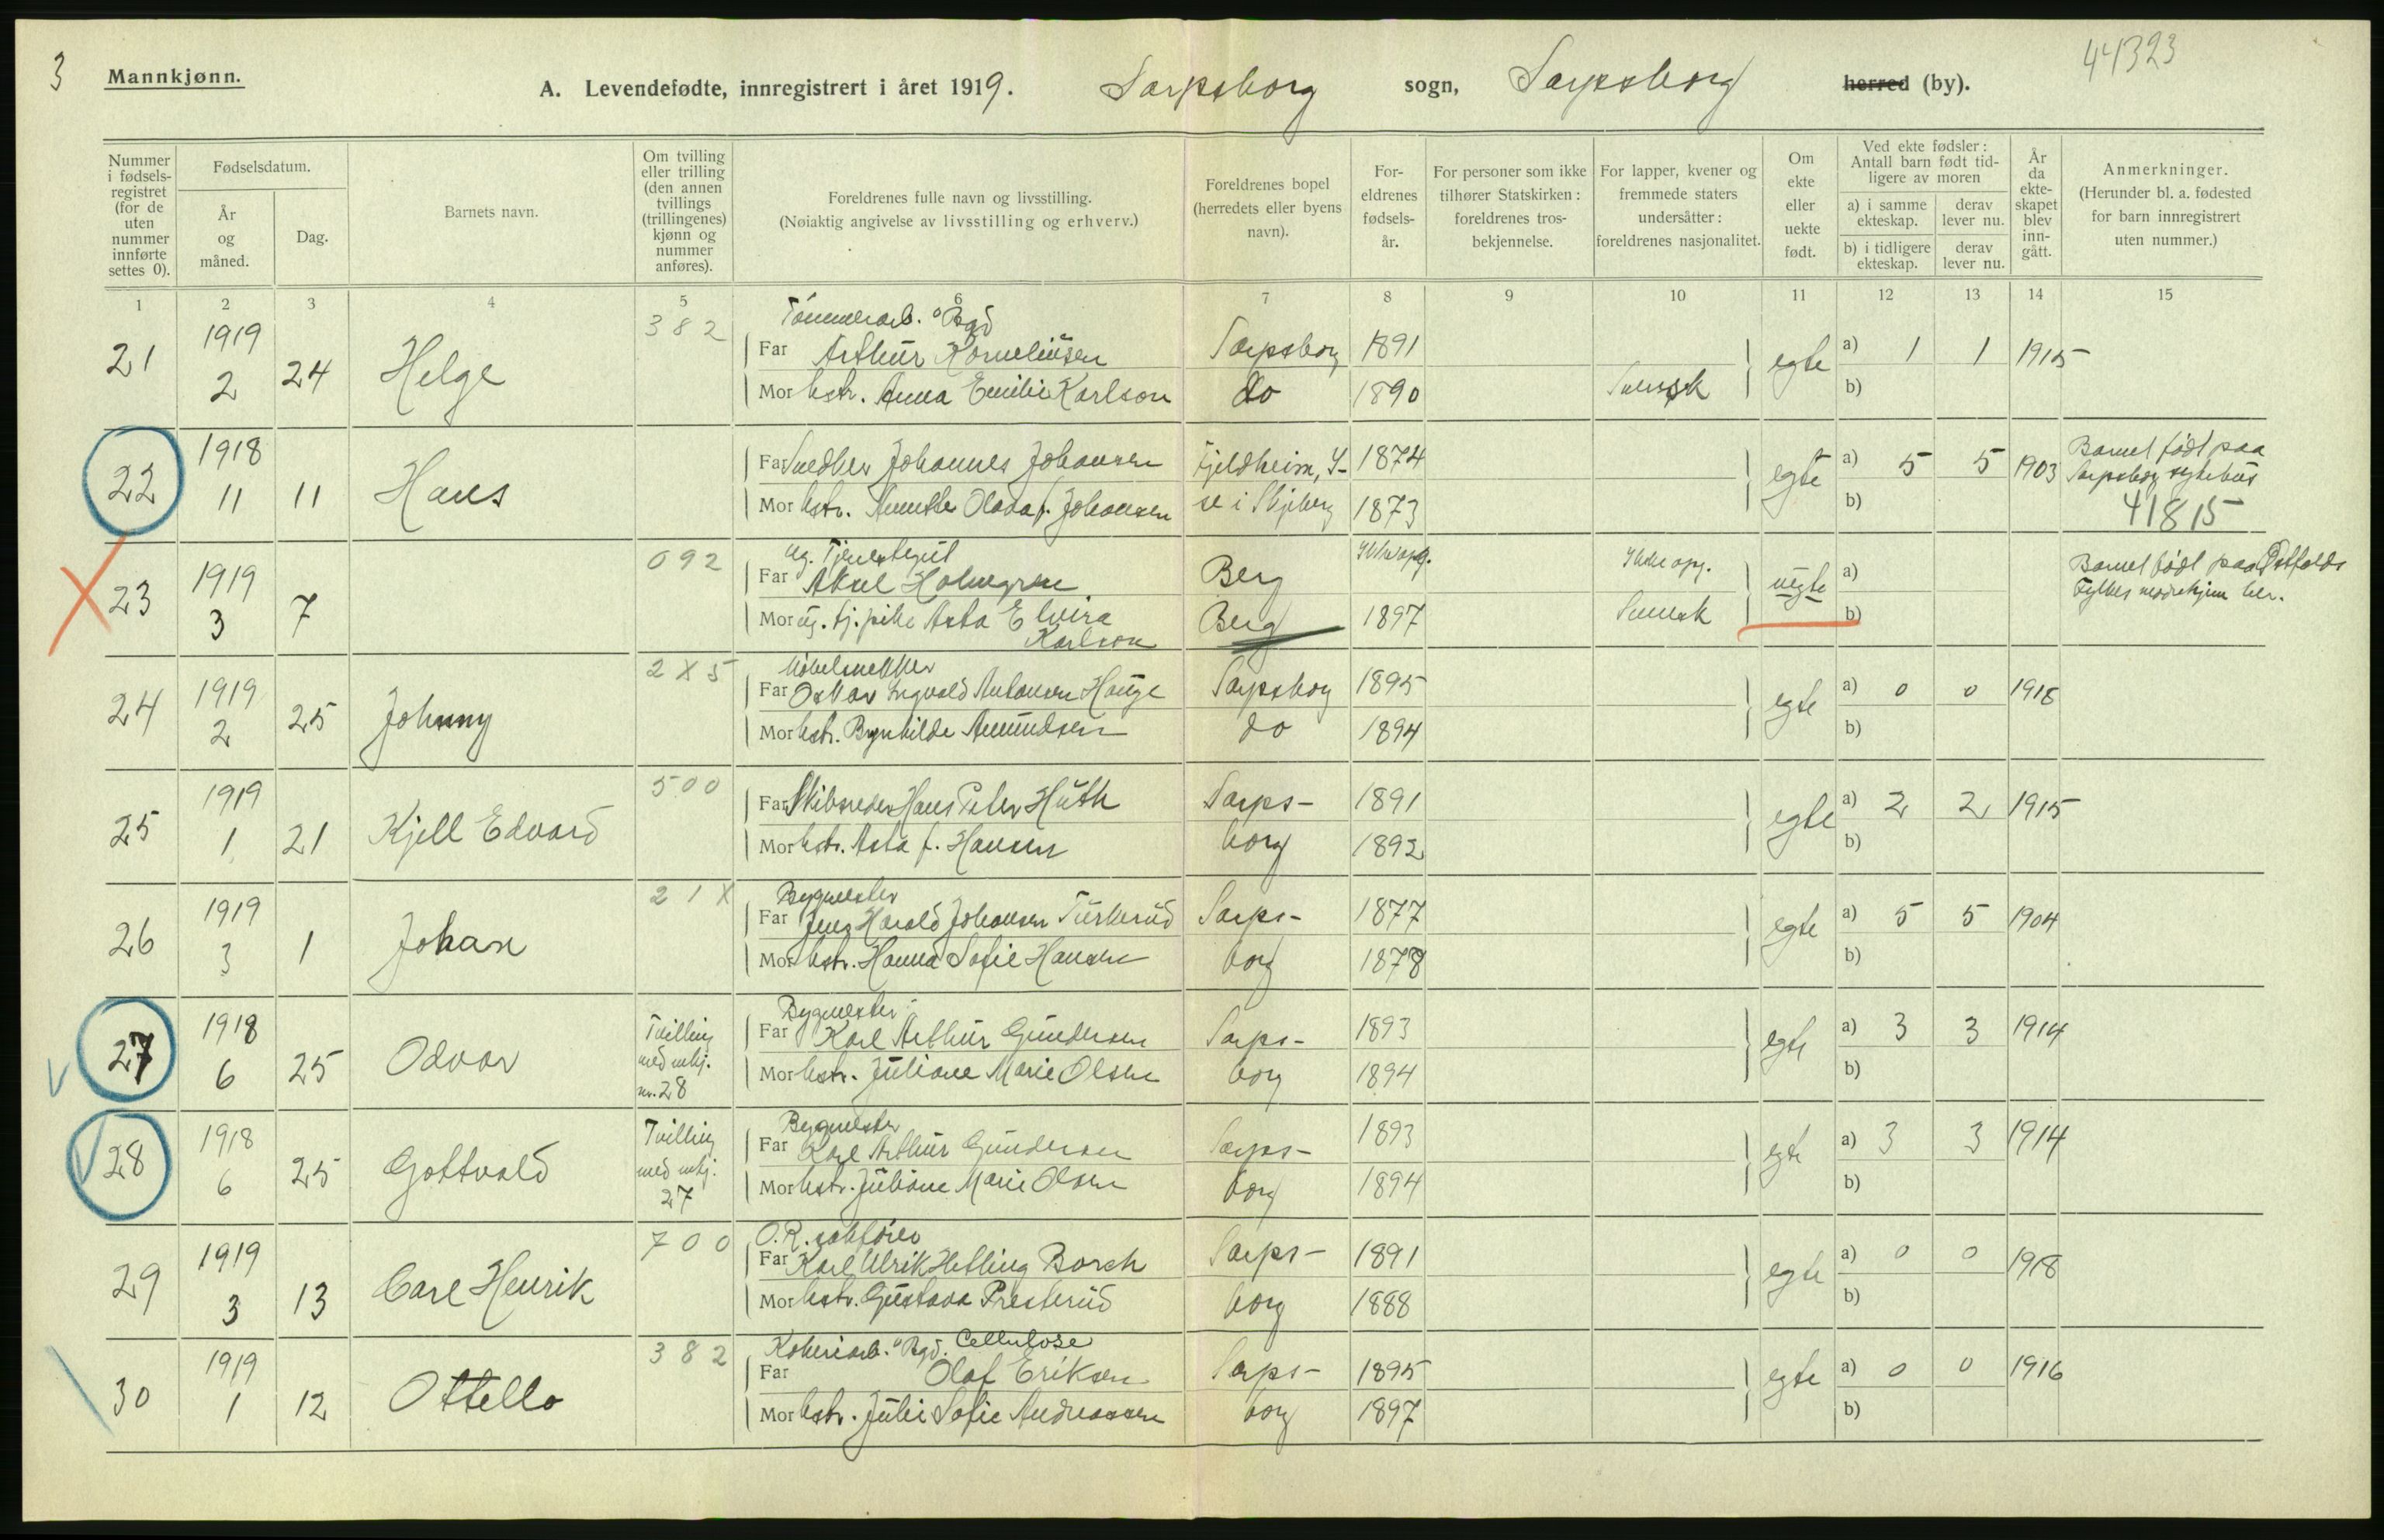 3
Mannkjønn.
A. Levendefødte, innregistrert i året 1919. Sarpsborg sogn, Sarpsborg herred (by).
44323
Nummer i fødsels-registret (for de uten nummer innførte settes 0).
Fødselsdatum.
År og måned.
Dag.
Barnets navn.
Om tvilling eller trilling (den annen tvillings (trillingenes) kjønn og nummer anføres).
Foreldrenes fulle navn og livsstilling.
(Nøiaktig angivelse av livsstilling og erhverv.)
Foreldrenes bopel (herredets eller byens navn).
For-eldrenes fødsels-år.
For personer som ikke tilhører Statskirken: foreldrenes tros-bekjennelse.
For lapper, kvener og fremmede staters undersåtter: foreldrenes nasjonalitet.
Om ekte eller uekte født.
Ved ekte fødsler: Antall barn født tid-ligere av moren
a) i samme ekteskap.
derav lever nu.
b) i tidligere ekteskap.
derav lever nu.
År da ekte-skapet blev inn-gått.
Anmerkninger.
(Herunder bl. a. fødested for barn innregistrert uten nummer.)
1 2 3 4 5 6 7 8 9 10 11 12 13 14 15
382 Tømmerarb. Bgd
21 1919 2 24 Helge Far Arthur Korneliusen Sarpsborg 1891 egte a) 1 1 1915
Mor hstr. Anna Emilie Karlson do 1890 Svensk b)
22 1918 11 11 Hans Far Snedker Johannes Johansen Fjeldheim, Y- 1874 egte a) 5 5 1903 Barnet født paa Sarpsborg sykehus
Mor hstr. Annette Olava f. Johansen se i Skjeberg 1873 b) 41815
092 ug. Tjenestegut
23 1919 3 7 Far Aksel Holmgren Berg Ikke opg. Ikke opg. uegte a) Barnet født paa Østfolds Fylkes mødrehjem her.
Mor ug. tj.pike Asta Elvira Karlson Berg 1897 Svensk b)
2X5 Møbelsnekker
24 1919 2 25 Johnny Far Oskar Ingvald Antonsen Hauge Sarpsborg 1895 egte a) 0 0 1918
Mor hstr. Brynhilde Amundsen do 1894 b)
500
25 1919 1 21 Kjell Edvard Far Skibsreder Hans Peter Huth Sarps- 1891 egte a) 2 2 1915
Mor hstr. Asta f. Hansen borg 1892 b)
21X Bygmester
26 1919 3 1 Johan Far Jens Harald Johansen Turkerud Sarps- 1877 egte a) 5 5 1904
Mor hstr. Hanna Sofie Hansen borg 1878 b)
Bygmester
27 1918 6 25 Odvar Tvilling med mkj. nr. 28 Far Karl Arthur Gundersen Sarps- 1893 egte a) 3 3 1914
Mor hstr. Juliane Marie Olsen borg 1894 b)
Bygmester
28 1918 6 25 Gottvald Tvilling med mkj. 27 Far Karl Arthur Gundersen Sarps- 1893 egte a) 3 3 1914
Mor hstr. Juliane Marie Olsen borg 1894 b)
700 O.R. sakfører
29 1919 3 13 Carl Henrik Far Karl Ulrik Hetling Borch Sarps- 1891 egte a) 0 0 1918
Mor hstr. Gustava Presterud borg 1888 b)
382 Kokeriarb. Bgd. Cellulose
30 1919 1 12 Ottello Far Olaf Eriksen Sarps- 1895 egte a) 0 0 1916
Mor hstr. Julie Sofie Andreassen borg 1897 b)